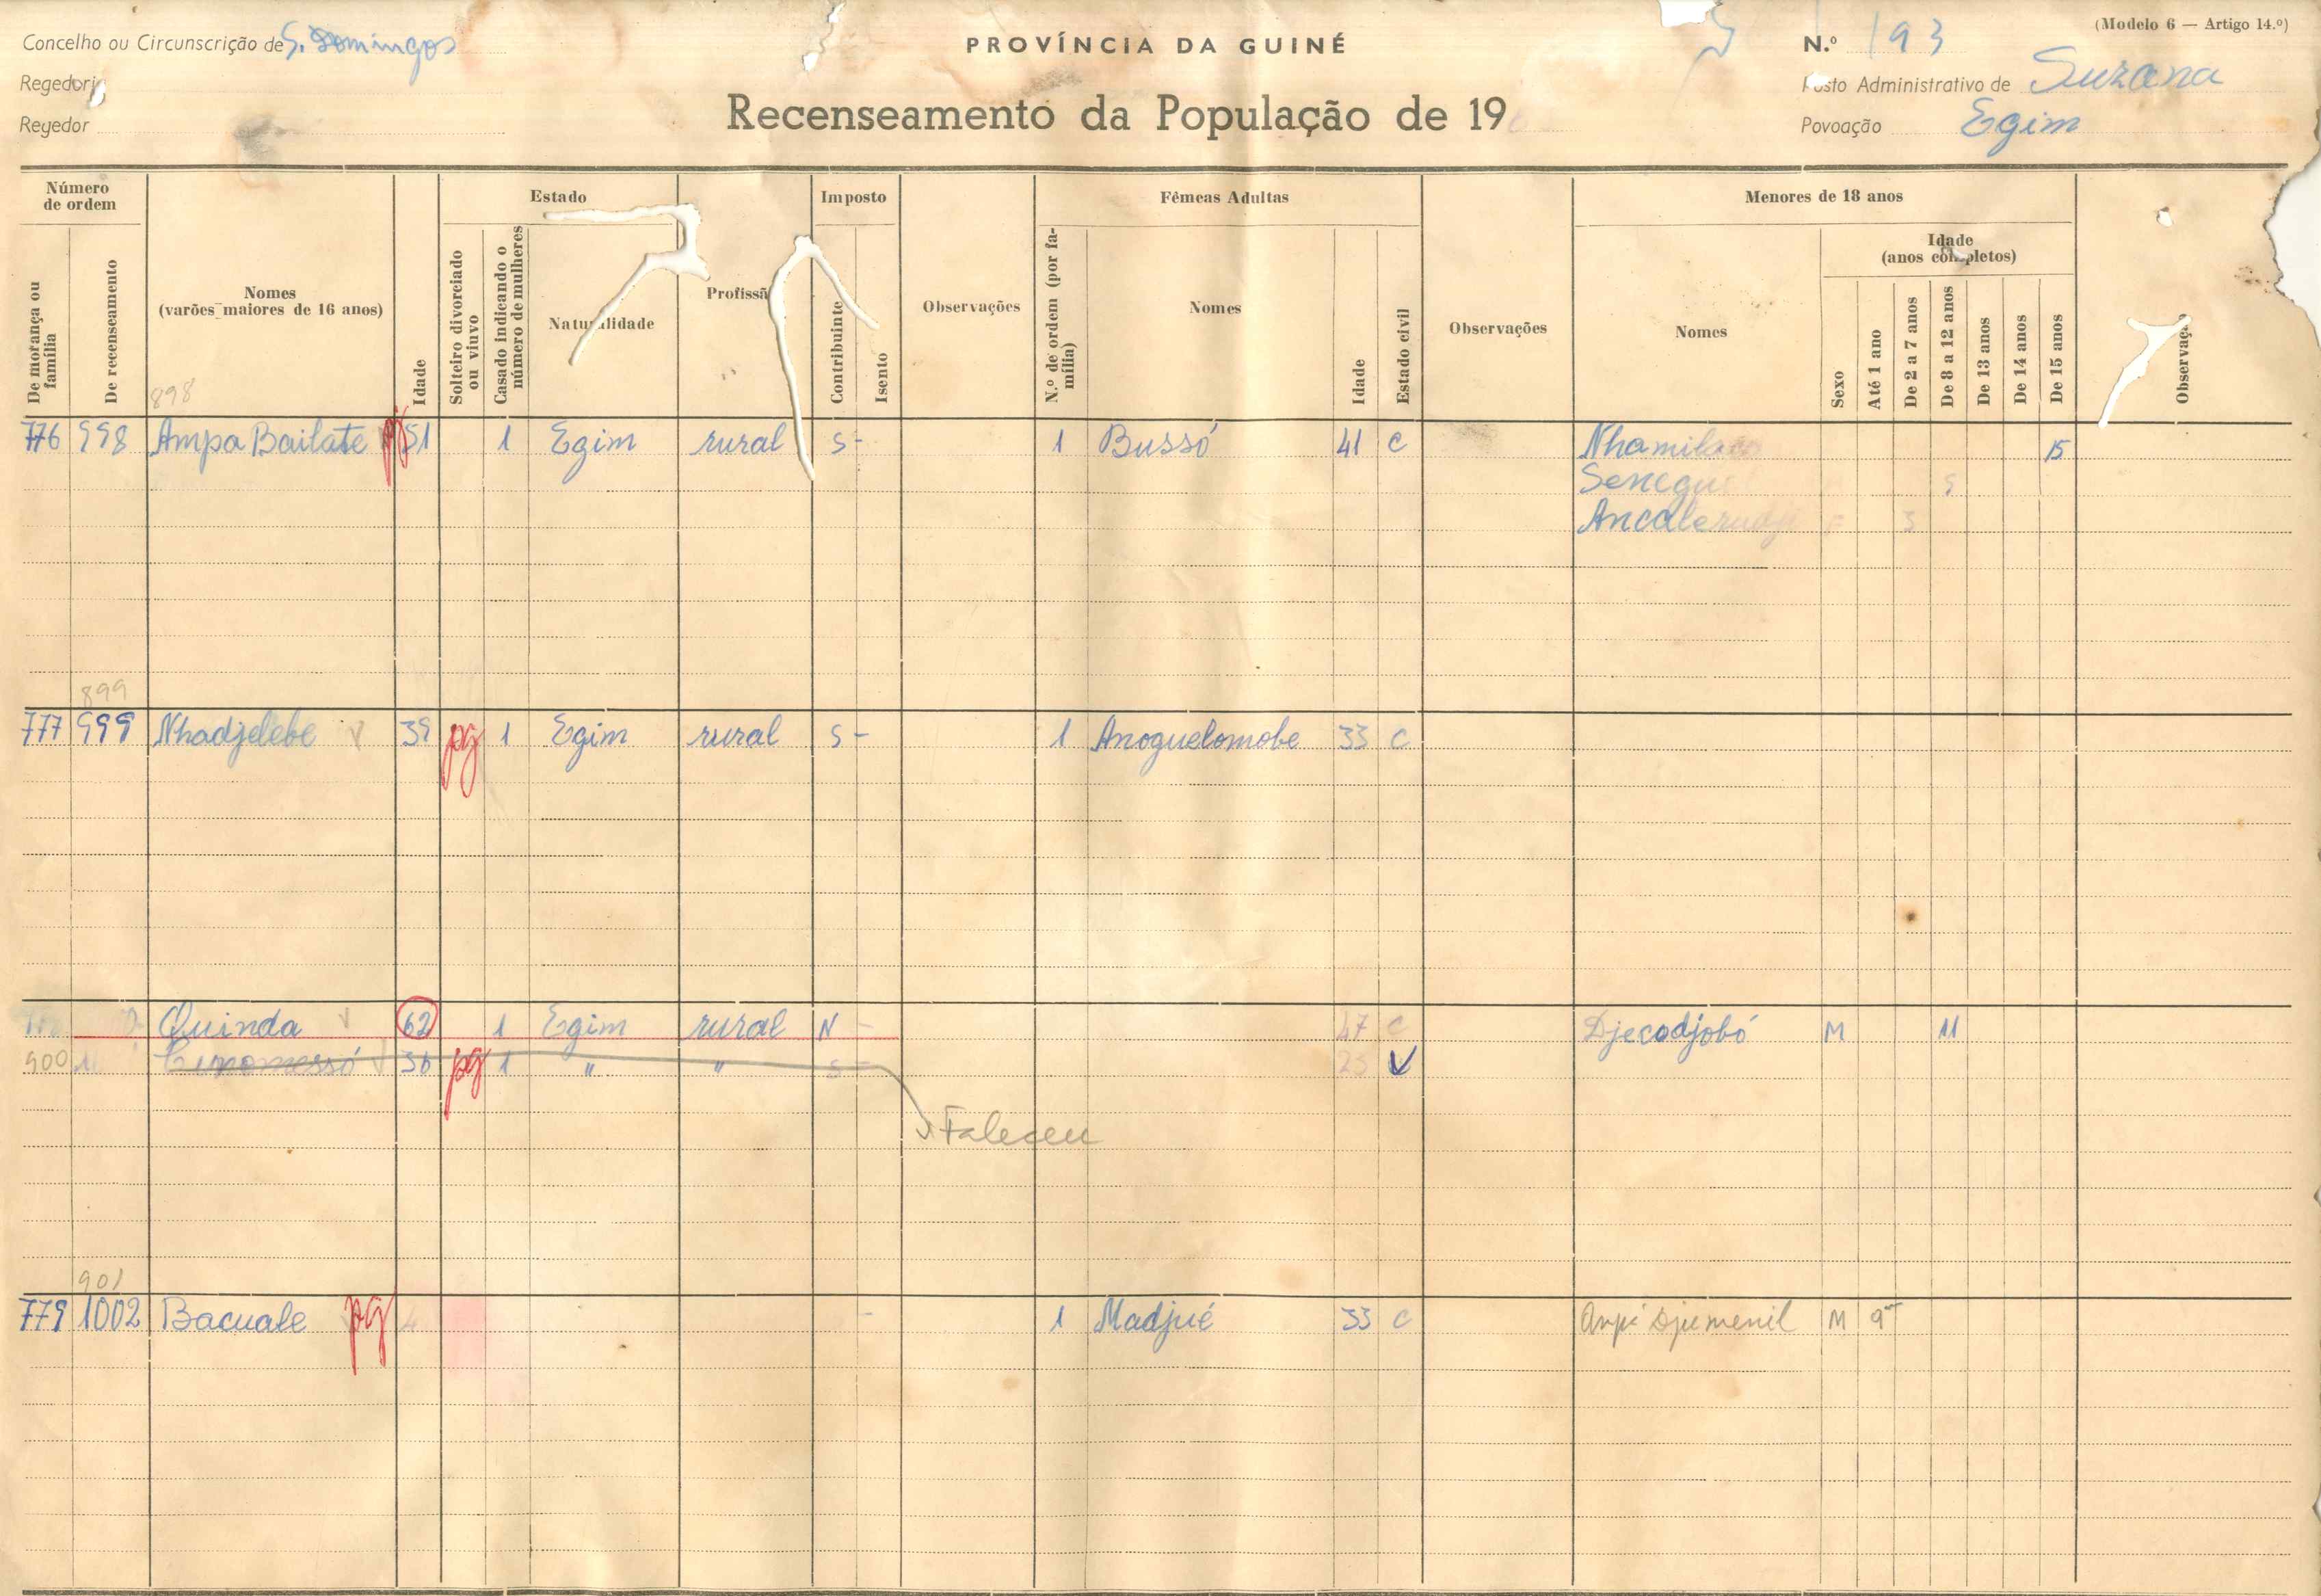 (Modelo 6 — Artigo 14.º)
Concelho ou Circunscrição de S. Domingos
PROVÍNCIA DA GUINÉ
N.º 193
Regedori
Posto Administrativo de Suzana
Regedor
Recenseamento da População de 19
Povoação Egim
Número de ordem
Estado
Imposto
Fêmeas Adultas
Menores de 18 anos
De morança ou família
De recenseamento
Nomes (varões maiores de 16 anos)
Idade
Solteiro divorciado ou viuvo
Casado indicando o número de mulheres
Naturalidade
Profissã
Contribuinte
Isento
Observações
N.º de ordem (por família)
Nomes
Idade
Estado civil
Observações
Nomes
Sexo
Idade (anos completos)
Até 1 ano
De 2 a 7 anos
De 8 a 12 anos
De 13 anos
De 14 anos
De 15 anos
Observaç
898
776 998 Ampa Bailate pg 51 1 Egim rural S - 1 Bussó 41 C Nhamila 15
Senegu 9
Ancalerudj F 3
899
777 999 Nhadjelebe V 39 pg 1 Egim rural S - 1 Anoguelomobe 33 C
Quinda V 62 1 Egim rural N - 47 C Djecodjobó M 11
900 36 pg 1 " " S - 23 V
Faleceu
901
779 1002 Bacuale pg 4 - 1 Madjué 33 C Djumenil M